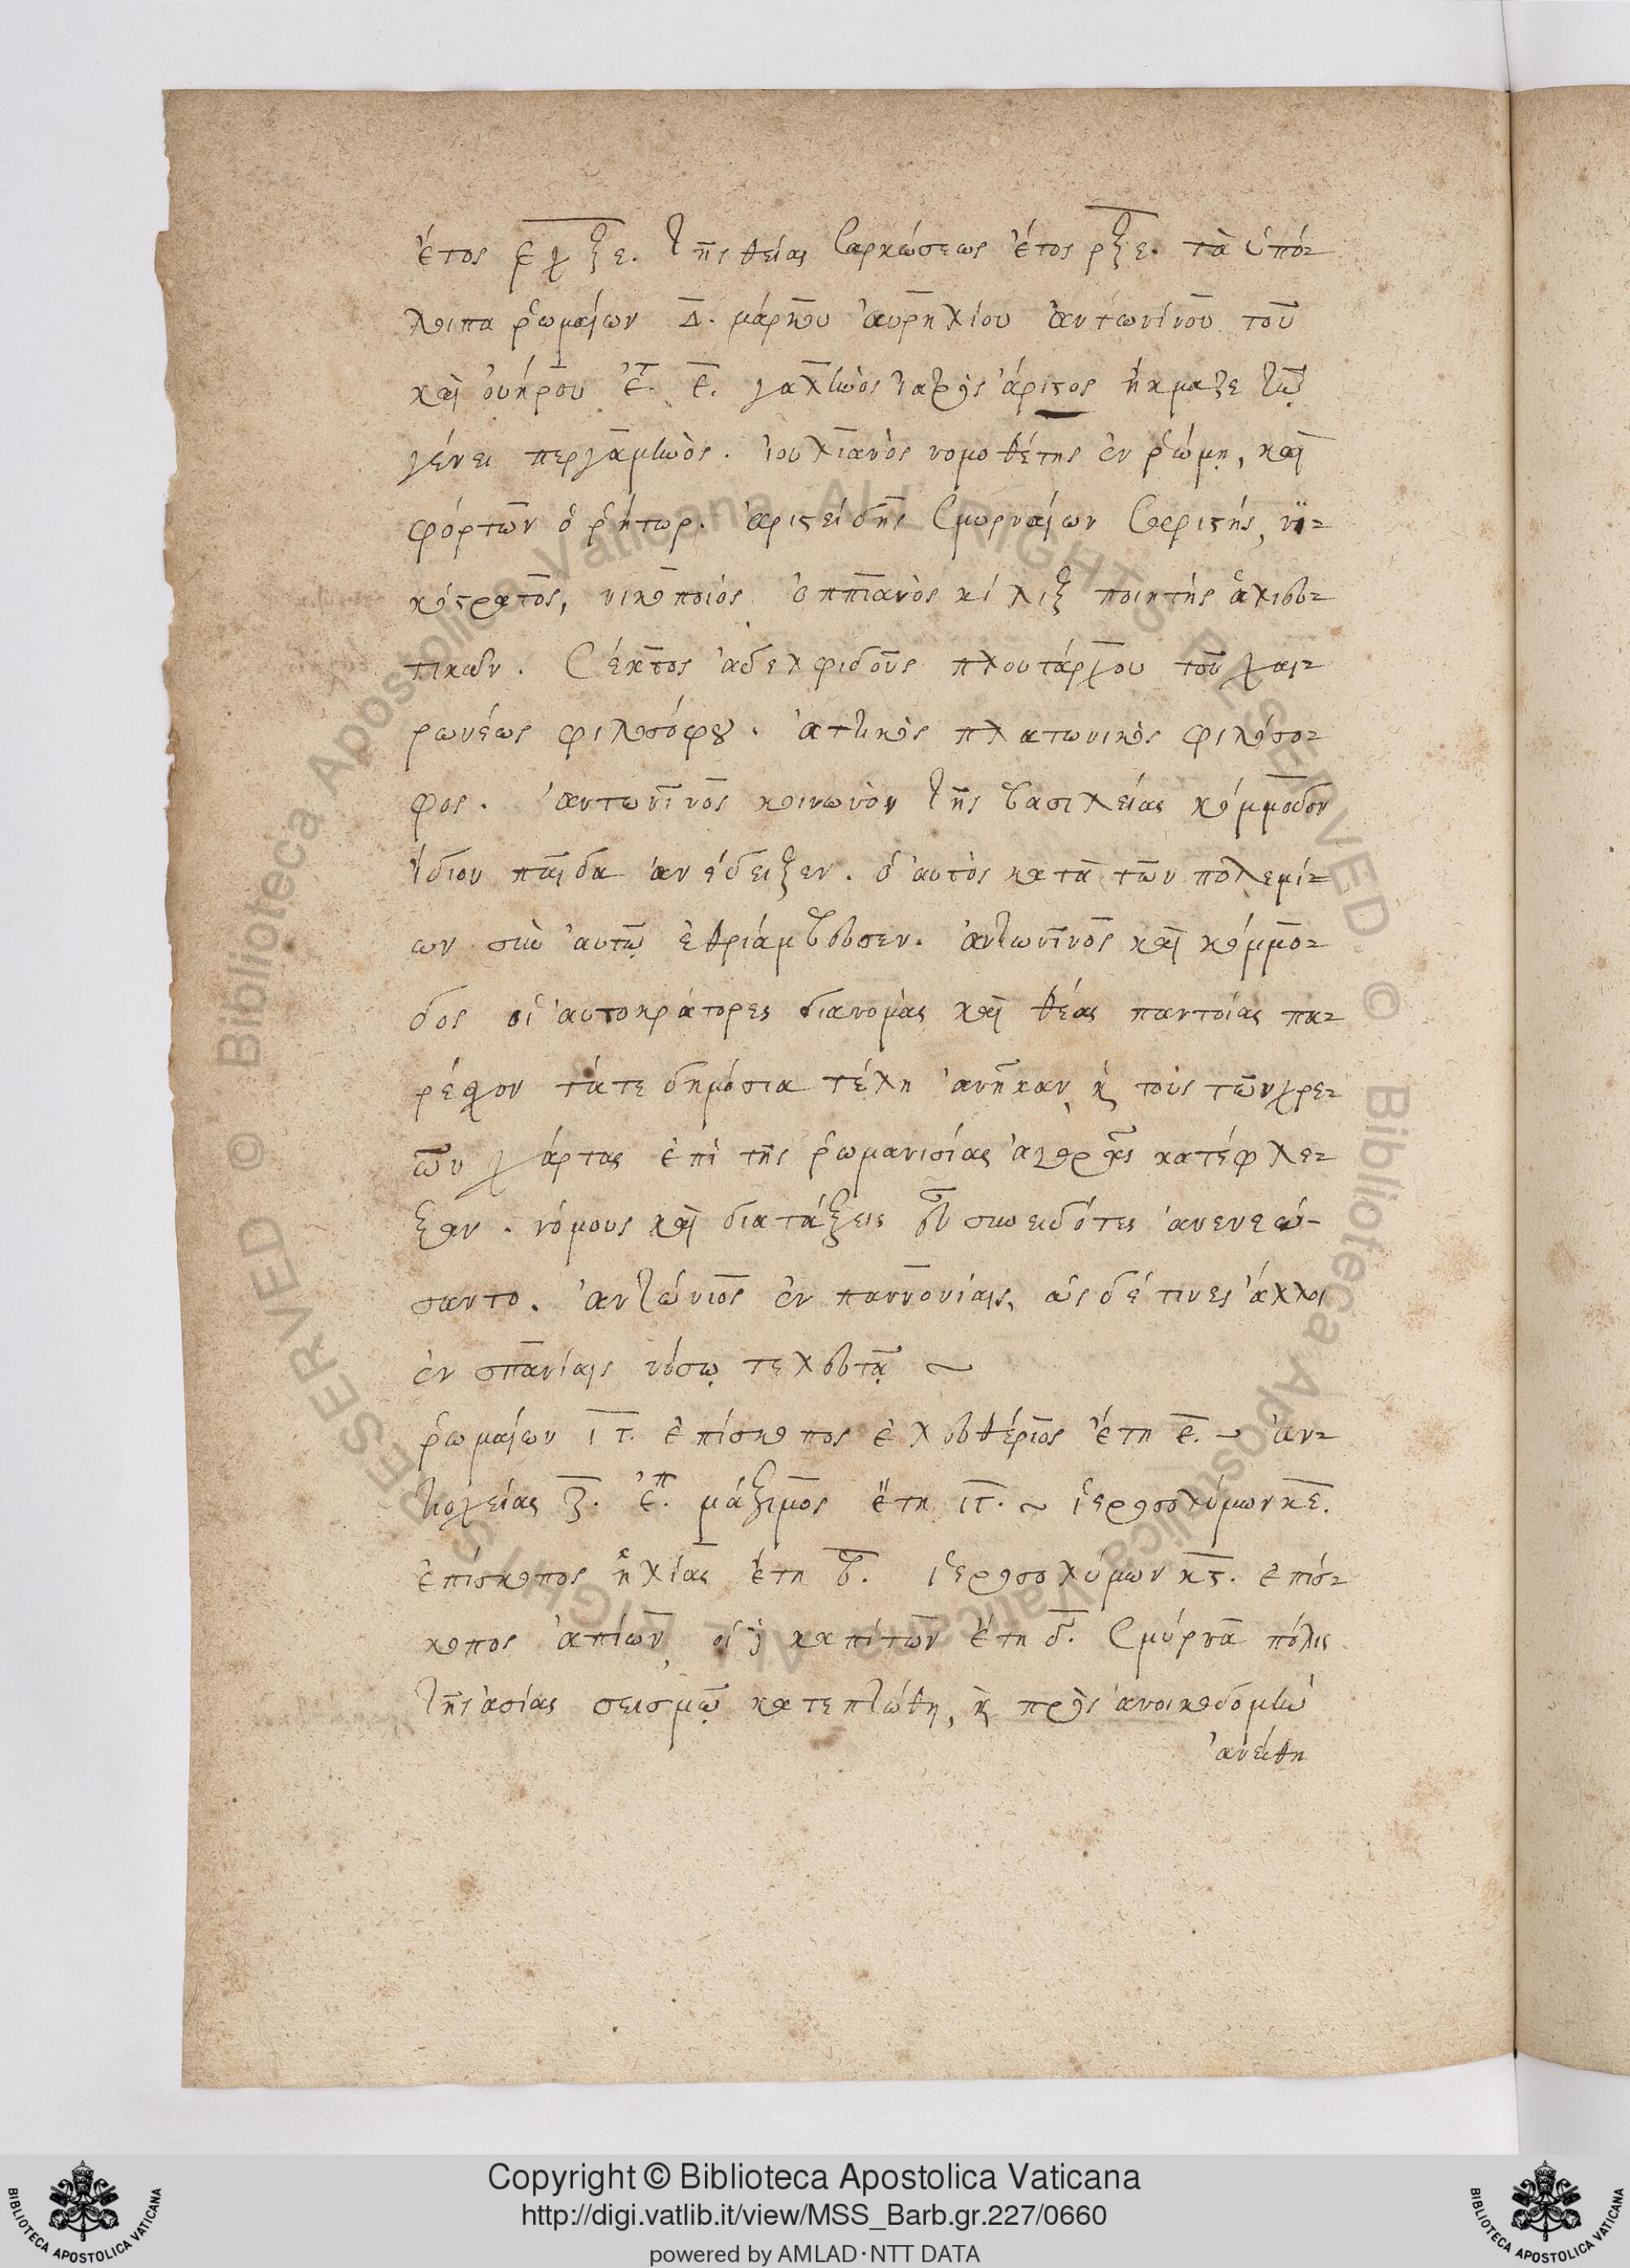 ἔτος ͵εχξε. τῆς θείας σαρκώσεως ἔτος ρξε. τὰ ὑπό-
λοιπα ῥωμαίων Δ. μάρκου ἀυρηλίου ἀντωνίνου τοῦ
καὶ ὀυήρου ἐτ. ε. γαληνὸς ἰατρὸς ἄριστος ἤκμαζε τῷ
γένει περγαμηνὸς. ἰουλιανὸς νομοθέτης ἐν ῥώμῃ, καὶ
φόρτων ὁ ῥήτωρ. ἀριστείδης σμυρναίων σοφιστής, νι-
κόστρατος, νικοποιός. ὀππιανὸς κίλιξ ποιητὴς ἁλιευ-
τικῶν. σέκτος ἀδελφιδοῦς πλουτάρχου τοῦ χαι-
ρωνέως φιλοσόφου. ἀττικὸς πλατωνικὸς φιλόσο-
φος. ἀντωνῖνος κοινωνὸν τῆς βασιλείας κόμμοδον
ἴδιον παῖδα ἀνέδειξεν. ὁ ἀυτὸς κατὰ τῶν πολεμί-
ων σὺν ἀυτῷ ἐθριάμβευσεν. ἀντωνῖνος καὶ κόμμο-
δος οἱ ἀυτοκράτορες διανομὰς καὶ θέας παντοίας πα-
ρέσχον τάτε δημόσια τέλη ἀνῆκαν, καὶ τοὺς τῶν χρε-
ῶν χάρτας ἐπὶ τῆς ῥωμανισίας ἀγορᾶς κατέφλε-
ξαν. νόμους καὶ διατάξεις εὖ συνειδότες ἀνενεώ-
σαντο. ἀντώνιος ἐν παννονίαις, ὡς δέ τινες ἄλλοι
ἐν σπανίαις νόσῳ τελευτᾷ ~
ῥωμαίων ιτ. ἐπίσκοπος ἐλευθέριος ἔτη ε. ~ ἀν-
τιοχείας ζ. ἐπ. μάξιμος ἔτη ιτ. ~ ἱεροσολύμων κε.
ἐπίσκοπος ἠλίας ἔτη β. ἱεροσολύμων κς. ἐπίσ-
κοπος ἀπίων, οἱ δὲ καπίτων ἔτη δ. σμύρνα πόλις
τῆς ἀσίας σεισμῷ κατεπτώθη, καὶ πρὸς ἀνοικοδομὴν
ἀνείθη
Copyright © Biblioteca Apostolica Vaticana
http://digi.vatlib.it/view/MSS_Barb.gr.227/0660
powered by AMLAD·NTT DATA